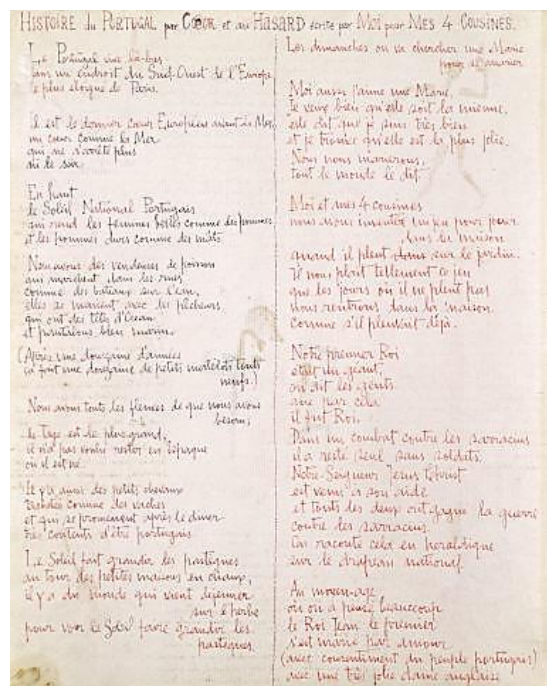 HISTOIRE du PORTUGAL par CŒUR et au HASARD écrite par MOI pour MES 4 COUSINES.
Le Portugal
dans un endroit du Sud-Ouest de l'Europe
le plus éloigné de Paris.
Il est le dernier cœur Européen avant la Mer,
un cœur comme la Mer
qui ne s'arrête plus
ni le soir
En haut
le Soleil National Portugais
qui rend les femmes belles comme des pommes
et les hommes durs comme des mâts
Nous avons des vendeuses de poisson
qui marchent dans les rues
comme des bateaux sur l'eau,
elles se marient avec les pêcheurs
qui ont des têtes d'Océan
et pantalons bleu marin.
(Après une douzaine d'années
ça fait une douzaine de petits matelots touts
neufs.)
Nous avons touts les fleuves de que nous avons
besoin,
le Tage est le plus grand,
il n'a pas voulu rester en Espagne
où il est né.
Il y a aussi des petits chevaux
comme des vaches
et qui se promènent après le dîner
très contents d'être portugais
Le Soleil fait grandir les pastèques
au tour des petites maisons en chaux,
il y a du monde qui vient déjeuner
sur l'herbe
pour voir le Soleil faire grandir les
pastèques.
Les dimanches on va chercher une Marie
pour s'amarier
Moi aussi j'aime une Marie,
Je veux bien qu'elle soit la mienne,
elle dit que je suis très bien
et je trouve qu'elle est la plus jolie.
Nous nous marierons,
tout le monde le dit.
Moi et mes 4 cousines
nous avons inventé un jeu pour jouer
dans la maison
quand il pleut dans sur le jardin.
Il nous plaît tellement ce jeu
que les jours où il ne pleut pas
nous rentrons dans la maison
comme s'il pleuvait déjà.
Notre premier Roi
était un géant,
on dit les gents
que par cela
il fut Roi.
Dans un combat contre les sarracins
il a resté seul sans soldats.
Notre-Seigneur Jésus Christ
est venu à son aide
et touts les deux ont gagné la guerre
contre des sarracins.
On raconte cela en heraldique
sur le drapeau national.
Au moyen-age
où on a pensé beaucoup
le Roi Jean le premier
s'est marié par amour
(avec consentiment du peuple portugais)
avec une très jolie dame anglaise